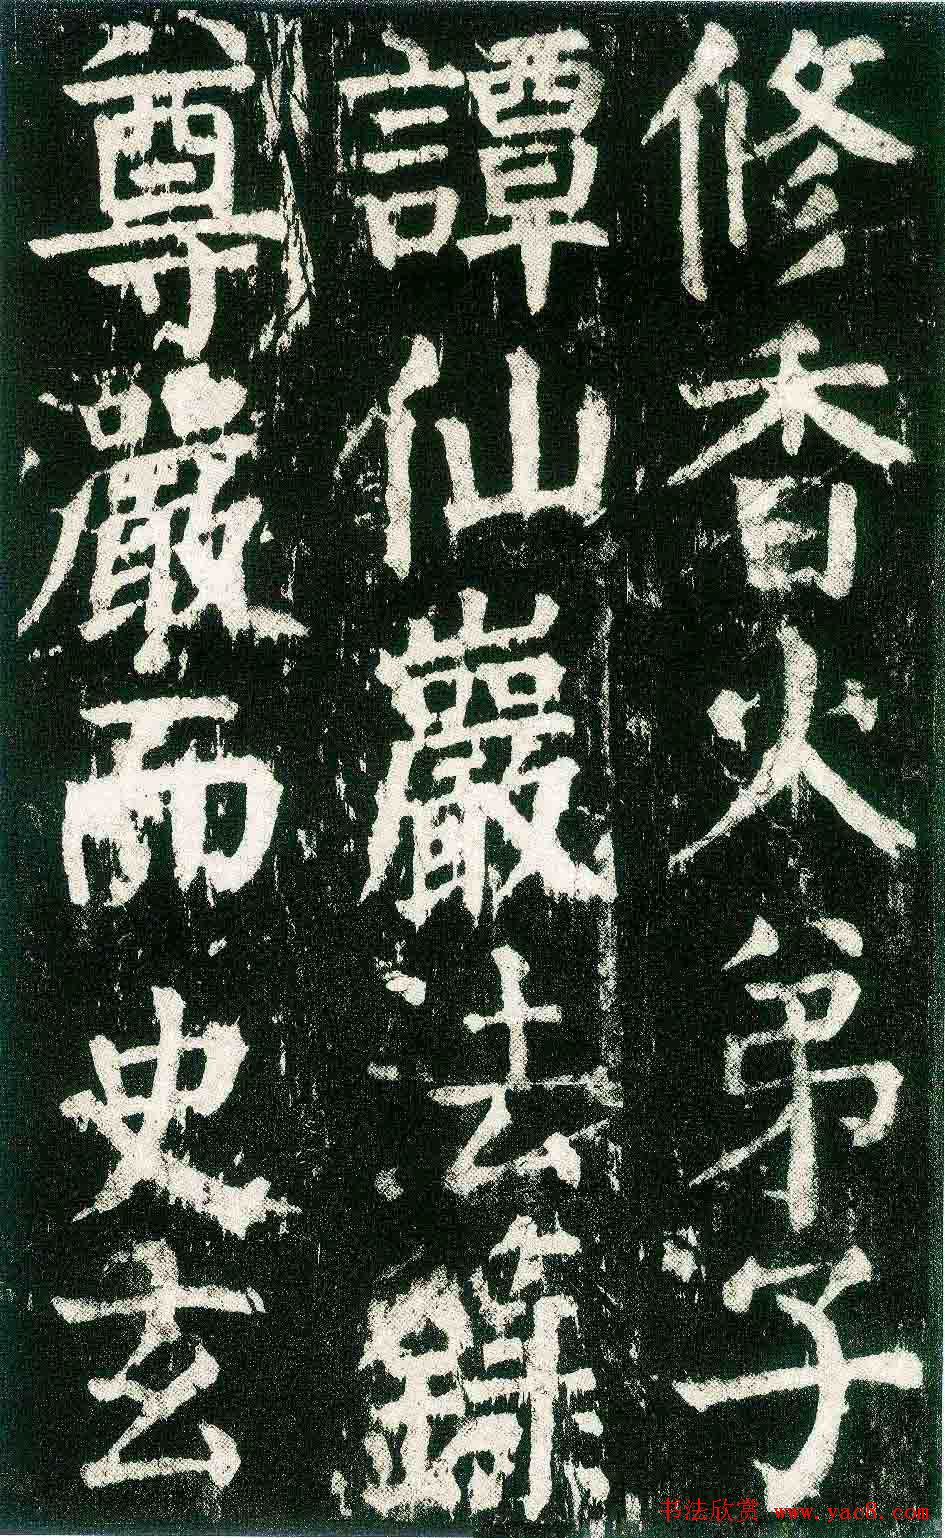 修香火弟子
譚仙巖法錄
尊嚴而史玄
书法欣赏 www.yac8.com